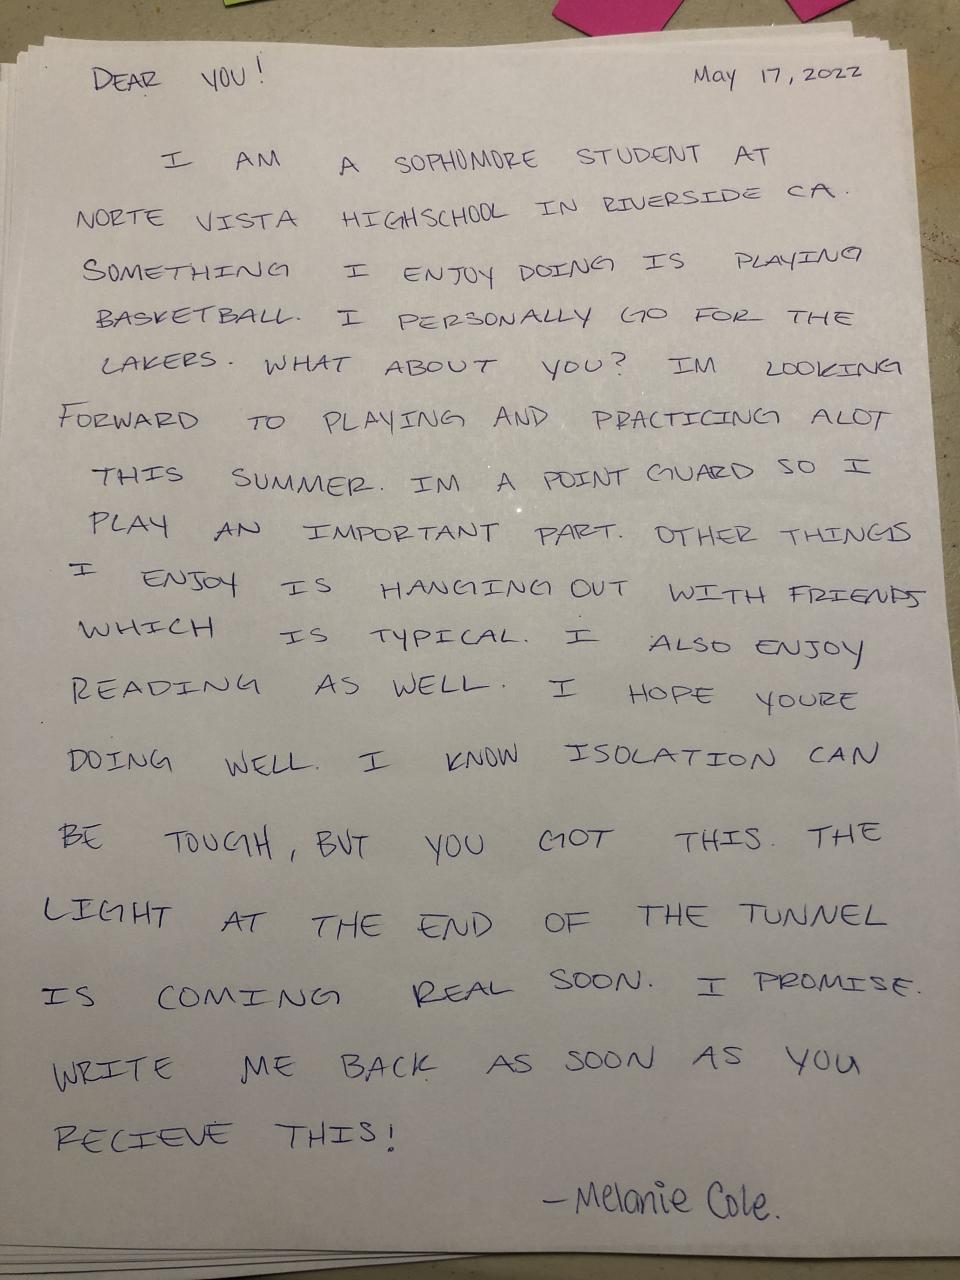 DEAR YOU!
May 17, 2022
I AM A SOPHOMORE STUDENT AT
NORTE VISTA HIGHSCHOOL IN RIVERSIDE CA.
SOMETHING I ENJOY DOING IS PLAYING
BASKETBALL. I PERSONALLY GO FOR THE
LAKERS. WHAT ABOUT YOU? IM LOOKING
FORWARD TO PLAYING AND PRACTICING ALOT
THIS SUMMER. IM A POINT GUARD SO I
PLAY AN IMPORTANT PART. OTHER THINGS
I ENJOY IS HANGING OUT WITH FRIENDS
WHICH IS TYPICAL. I ALSO ENJOY
READING AS WELL. I HOPE YOURE
DOING WELL. I KNOW ISOLATION CAN
BE TOUGH, BUT YOU GOT THIS. THE
LIGHT AT THE END OF THE TUNNEL
IS COMING REAL SOON. I PROMISE.
WRITE ME BACK AS SOON AS YOU
RECIEVE THIS!
- Melanie Cole.